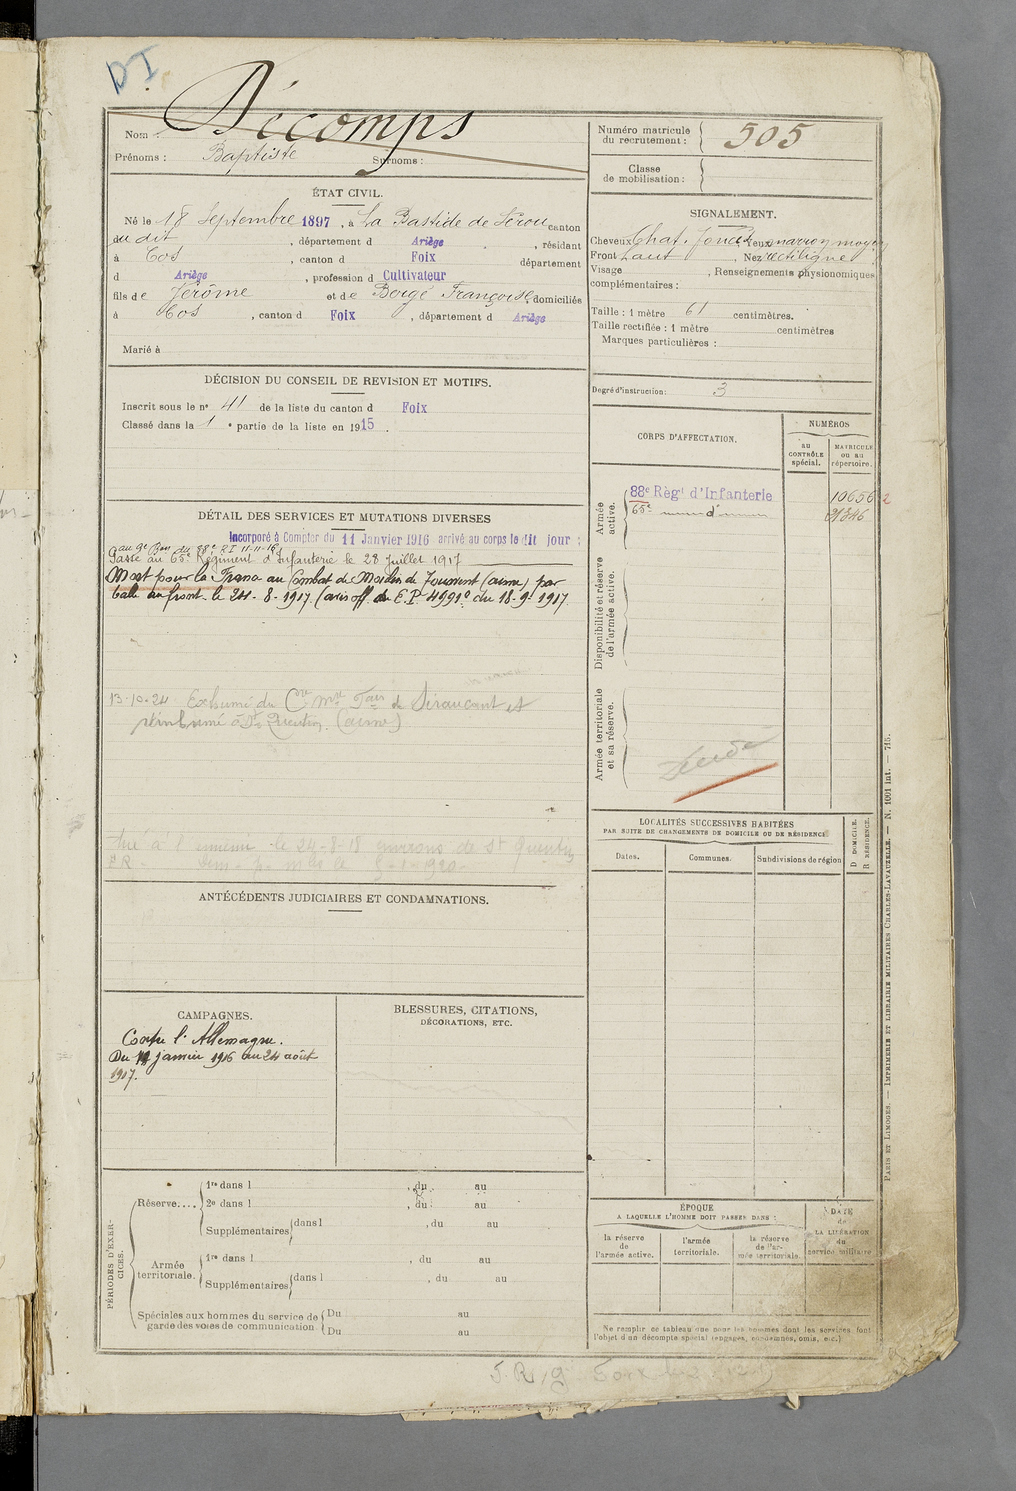 DI
Nom : Décomps
Prénoms : Baptiste Surnoms :
Numéro matricule
du recrutement : 505
Classe
de mobilisation :
ÉTAT CIVIL.
Né le 18 Septembre 1897, à La Bastide de Sérou canton
du dit, département d Ariège, résidant
à Cos, canton d Foix département
d Ariège, profession d Cultivateur
fils de Jérôme et de Bergé Françoise, domiciliés
à Cos, canton d Foix, département d Ariège
Marié à
SIGNALEMENT.
Cheveux Chat. foncé Yeux marron moyen
Front haut, Nez rectiligne
Visage, Renseignements physionomiques
complémentaires :
Taille : 1 mètre 61 centimètres.
Taille rectifiée : 1 mètre centimètres
Marques particulières :
Degré d'instruction : 3
DÉCISION DU CONSEIL DE REVISION ET MOTIFS.
Inscrit sous le n° 41 de la liste du canton d Foix
Classé dans la 1e partie de la liste en 1915.
CORPS D'AFFECTATION.
NUMÉROS
au
CONTRÔLE
spécial.
MATRICULE
ou au
répertoire.
Armée
active.
88e Régt d'Infanterie 10656 2
65e d° 21346
Disponibilité et réserve
de l'armée active.
Armée territoriale
et sa réserve.
DÉTAIL DES SERVICES ET MUTATIONS DIVERSES
Incorporé à Compter du 11 Janvier 1916 arrivé au corps le dit jour :
au 9e Bon du 88e RI 11-11-16
Passé au 65e Régiment d'Infanterie le 28 Juillet 1917
Mort pour la France au Combat de Moulin de Toussent (aisne) par
balle au front le 24-8-1917. (avis off du E.P. 4991 du 18-9-1917.
13-10-24 Exhumé du Cre Mre Fais de Siraucourt et
réinhumé à St Quentin. (aisne)
tué à l'ennemi le 24-8-18 environs de St Quentin
LOCALITÉS SUCCESSIVES HABITÉES
PAR SUITE DE CHANGEMENTS DE DOMICILE OU DE RÉSIDENCE
Dates.
Communes.
Subdivisions de région
D DOMICILE.
R RÉSIDENCE.
ANTÉCÉDENTS JUDICIAIRES ET CONDAMNATIONS.
CAMPAGNES.
Contre l'Allemagne.
Du 11 janvier 1916 au 24 août
1917.
BLESSURES, CITATIONS,
DÉCORATIONS, ETC.
PÉRIODES D'EXERCICES.
Réserve.... 1re dans l , du au
2e dans l , du au
Supplémentaires dans l , du au
Armée
territoriale. 1re dans l , du au
Supplémentaires dans l , du au
Spéciales aux hommes du service de
garde des voies de communication Du au
Du au
ÉPOQUE
A LAQUELLE L'HOMME DOIT PASSER DANS :
la réserve
de
l'armée active.
l'armée
territoriale.
la réserve
de l'ar-
mée territoriale.
DATE
de
LA LIBÉRATION
du
service militaire
Ne remplir ce tableau que pour les hommes dont les services font
l'objet d'un décompte spécial (engagés, condamnés, omis, etc.)
PARIS ET LIMOGES. — IMPRIMERIE ET LIBRAIRIE MILITAIRES CHARLES-LAVAUZELLE. — N. 1001 int. — 715.